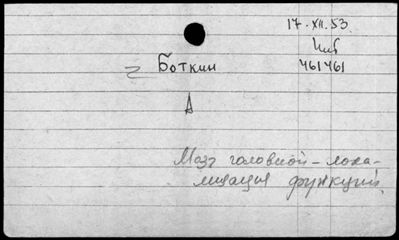 17.XII.53
Инв
461461
Боткин
Мозг головной – лока-
лизация функций.